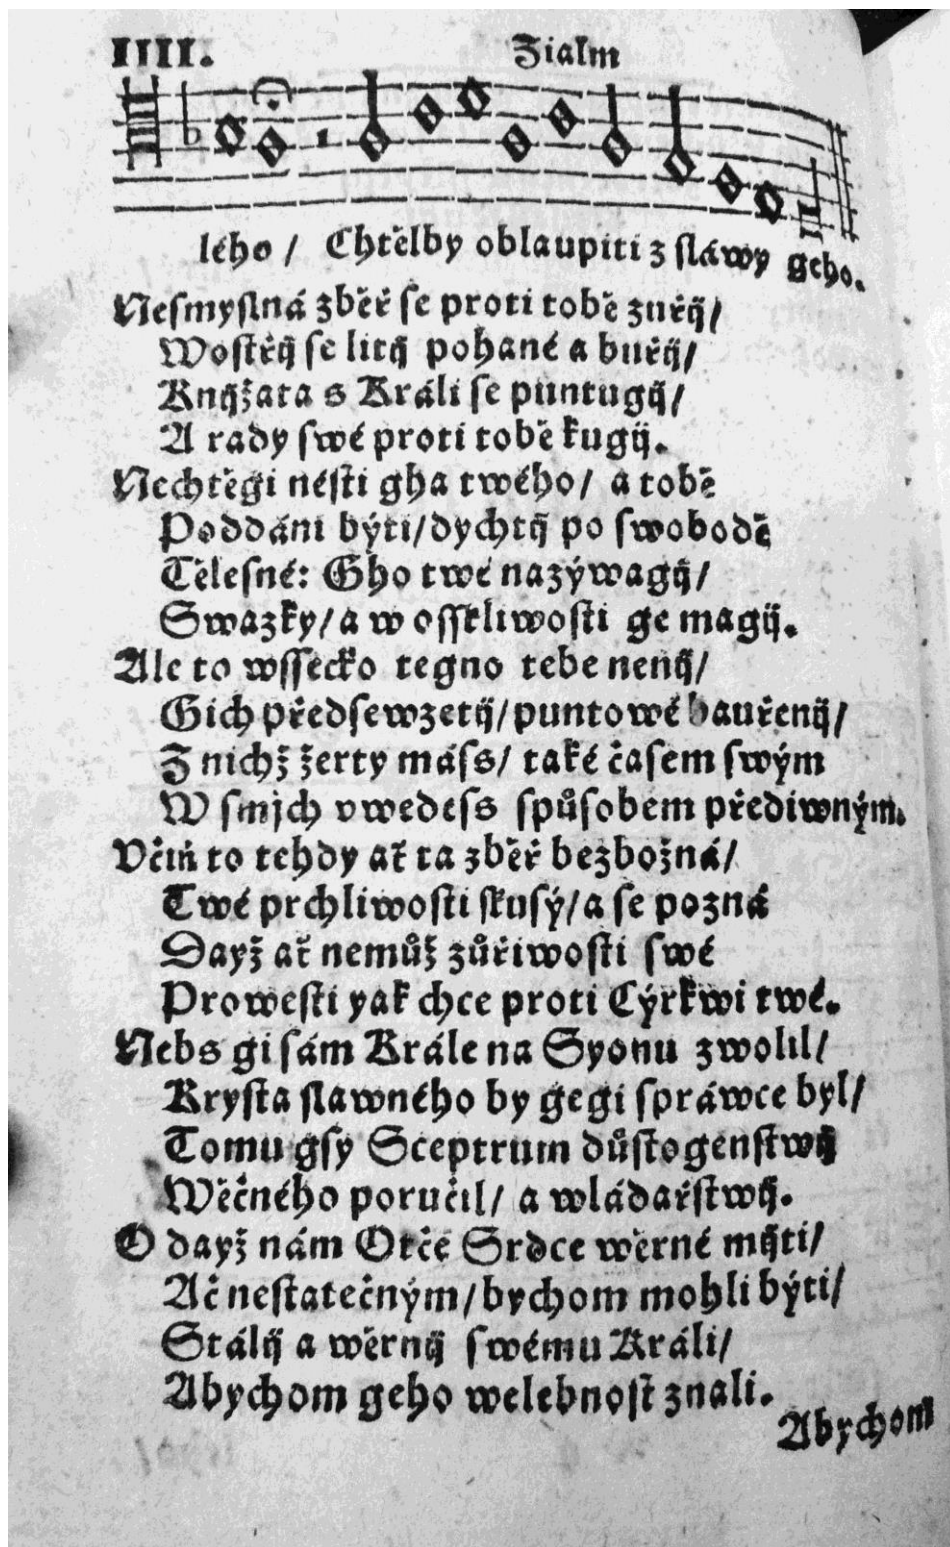 IIII. Zialm
lého / Chtělby oblaupiti z sláwy geho.
Nesmyslná zběř se proti tobě zuřij/
Wostřij se litij pohané a buřij/
Knijžata s Králi se puntugij/
A rady swé proti tobě kugij.
Nechtěgi nésti gha twého/ a tobě
Poddáni býti/dychtij po swobodě
Tělesné: Gho twé nazýwagij/
Swazky/a w osskliwosti ge magij.
Ale to wssecko tegno tebe nenij/
Gich předsewzetij/puntowé bauřenij/
Z nichž žerty máss/ také časem swým
W smjch vwedess spůsobem přediwným.
Včiń to tehdy ať ta zběř bezbožná/
Twé prchliwosti skusý/a se pozná
Dayž ať nemůž zůřiwosti swé
Prowesti yak chce proti Cýrkwi twé.
Nebs gi sám Krále na Syonu zwolil/
Krysta slawného by gegi spráwce byl/
Tomu gsy Sceptrum důstogenstwij
Wěčného poručil/ a wládařstwij.
O dayž nám Otče Srdce wěrné mijti/
Ač nestatečným/bychom mohli býti/
Stálij a wěrnij swému Králi/
Abychom geho welebnost znali.
Abychom